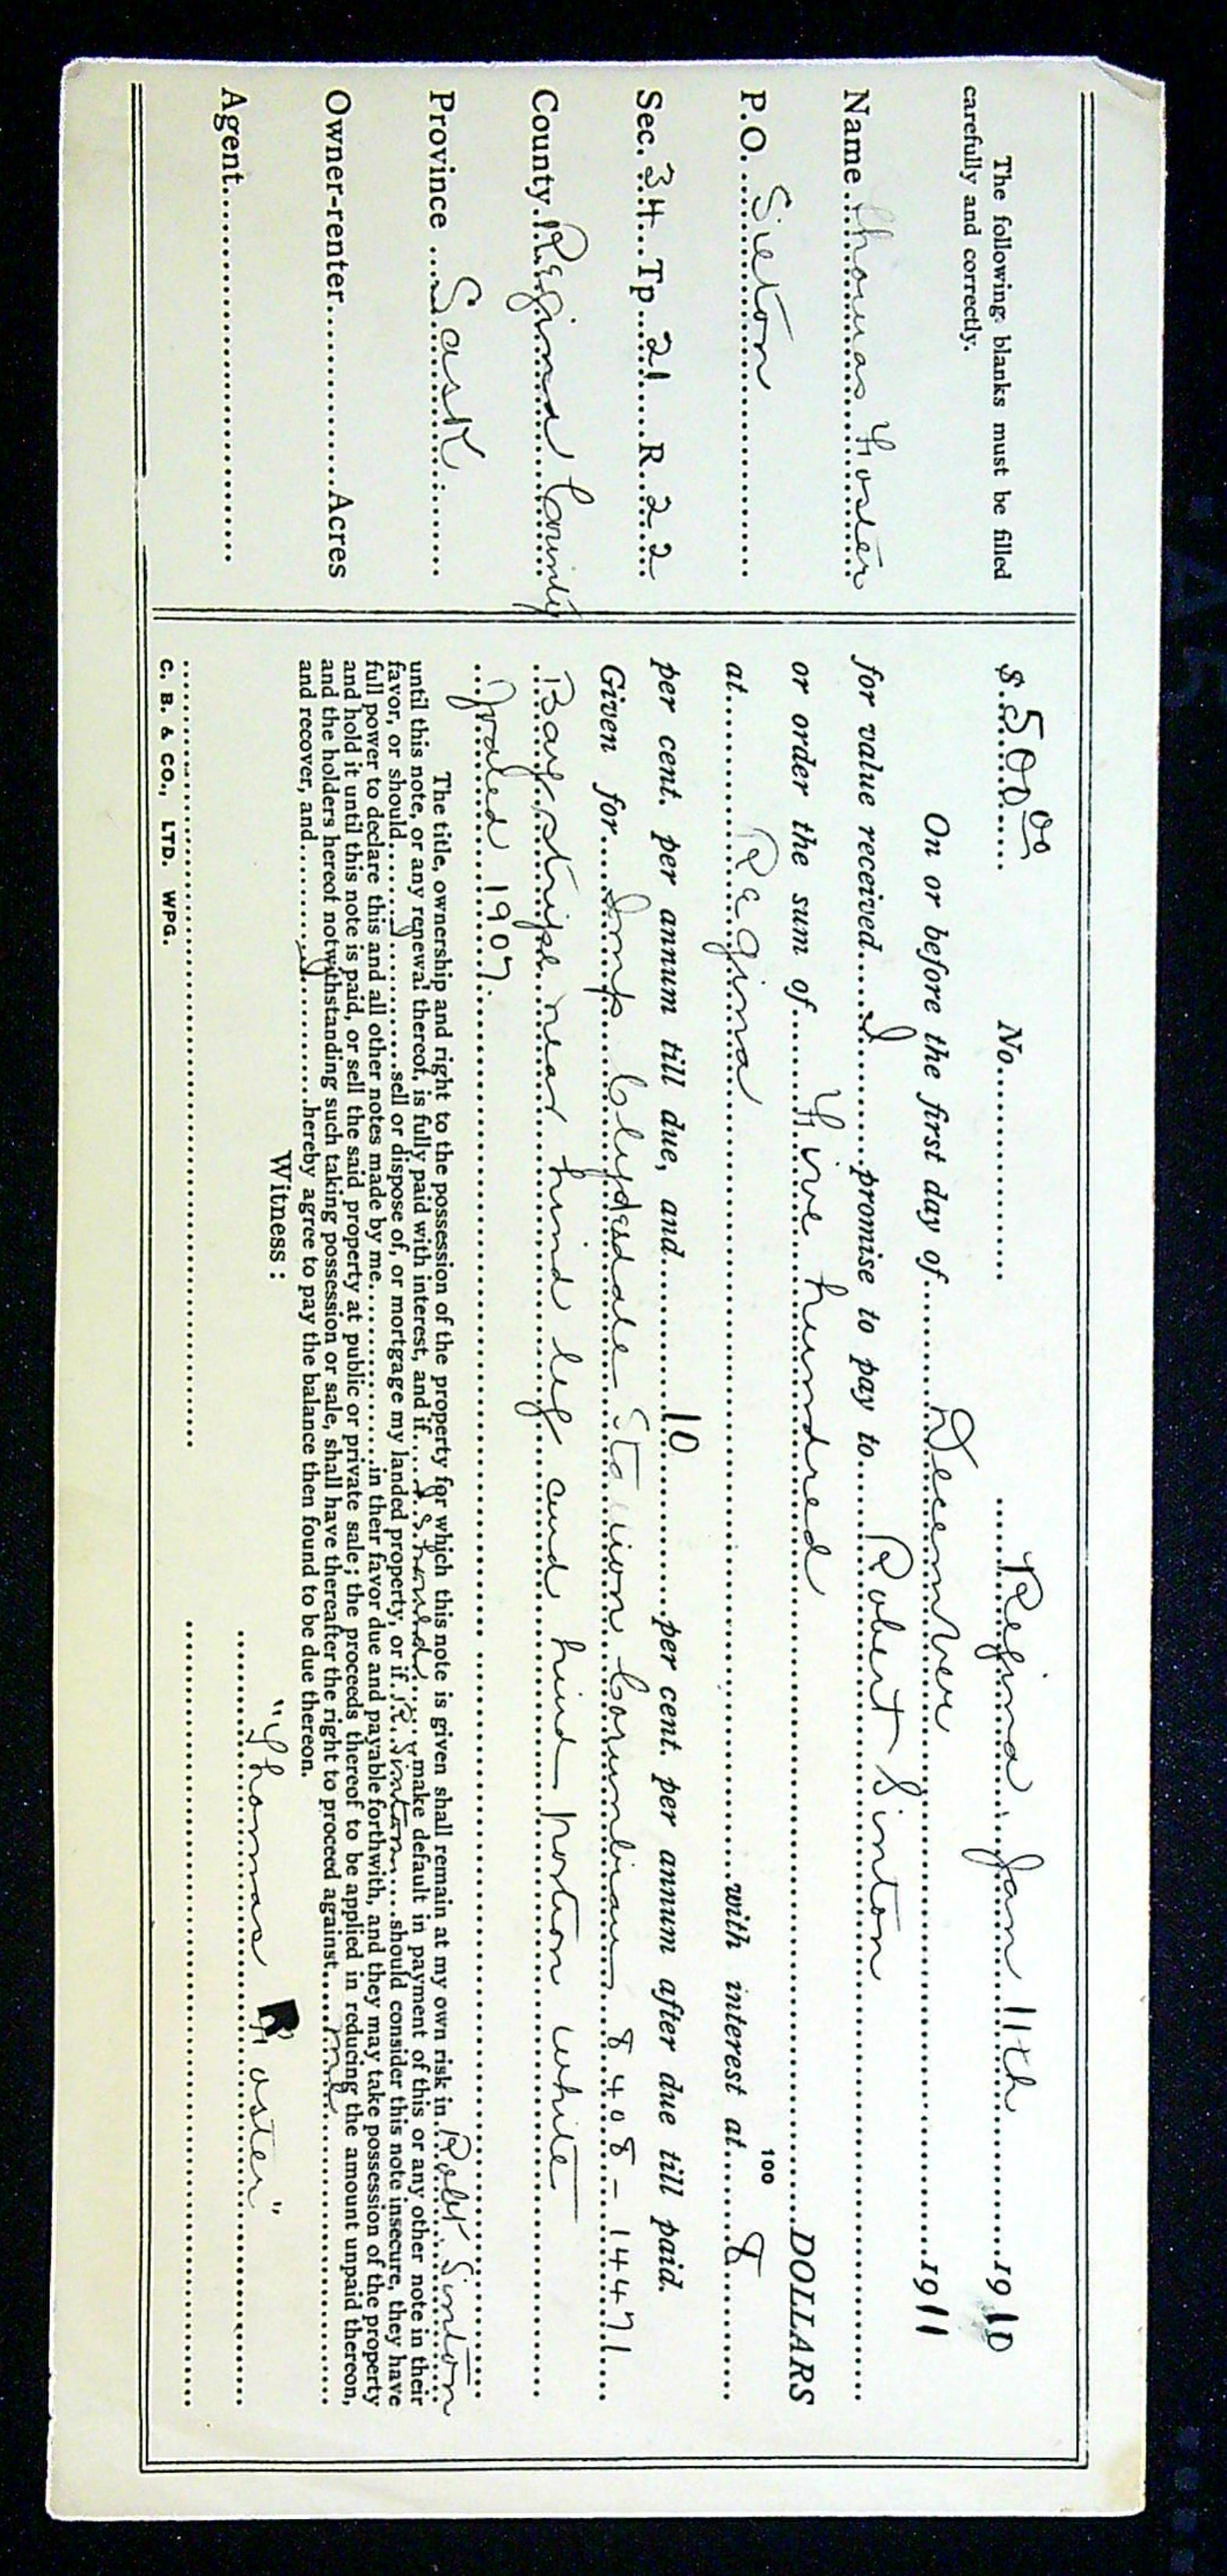 The following blanks must be filled
carefully and correctly.
Name Thomas Foster
P.O. Sieton
Sec. 34 Tp. 21 R. 22
County Regina County
Province Sask
Owner-renter Acres
Agent
$ 500 00 No. Regina Jan 11th 1910
On or before the first day of December 1911
for value received I promise to pay to Robert Sinton
or order the sum of Five hundred 100 DOLLARS
at Regina with interest at 8
per cent. per annum till due, and 10 per cent. per annum after due till paid.
Given for Imp. Clydesdale Stallion Columbian 8408-14471
Bay, stripe near hind leg and hind portion white
foaled 1907
The title, ownership and right to the possession of the property for which this note is given shall remain at my own risk in Robt Sinton
until this note, or any renewal thereof, is fully paid with interest, and if I should make default in payment of this or any other note in their
favor, or should I sell or dispose of, or mortgage my landed property, or if R. Sinton should consider this note insecure, they have
full power to declare this and all other notes made by me in their favor due and payable forthwith, and they may take possession of the property
and hold it until this note is paid, or sell the said property at public or private sale; the proceeds thereof to be applied in reducing the amount unpaid thereon,
and the holders hereof notwithstanding such taking possession or sale, shall have thereafter the right to proceed against me
and recover, and I hereby agree to pay the balance then found to be due thereon.
Witness:
"Thomas Foster"
C. B. & CO., LTD. WPG.